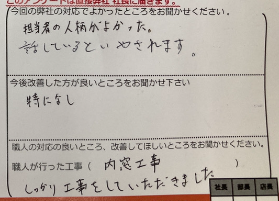 このアンケートは直接弊社 社長に届きます。
今回の弊社の対応でよかったところをお聞かせください。
担当者の人柄がよかった。
話しているといやされます。
今後改善した方が良いところをお聞かせ下さい
特になし
職人の対応の良いところ、改善してほしいところをお聞かせください。
職人が行った工事（ 内窓工事 ）
しっかり工事をしていただきました
社長 部長 店長